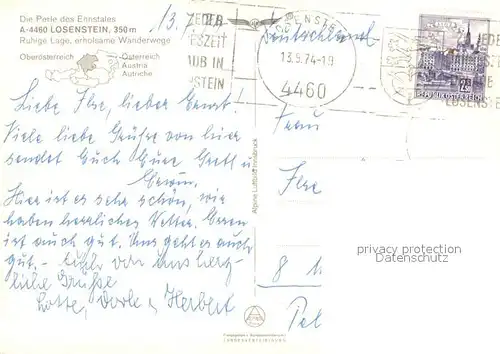 Die Perle des Ennstales
A-4460 LOSENSTEIN, 350 m
Ruhige Lage, erholsame Wanderwege
Oberösterreich
Österreich
Austria
Autriche
13.
JEDER
ESZEIT
UB IN
STEIN
LOSENSTEIN
13.9.74-19
4460
Deutschland
ZU JEDER
REPUBLIK ÖSTERREICH
LOSENSTE
Liebe Ilse, lieber Ernst!
Viele liebe Grüße von hier
sendet Euch Eure Gretl u.
Erwin.
Hier ist es sehr schön, wir
haben herrliches Wetter. Essen
ist auch gut. Uns geht es auch
gut. - Euch von uns herz-
liche Grüße
Lotte, Dorle u. Herbert
Frau
Ilse
8
Alpine Luftbild Innsbruck
privacy protection
Datenschutz